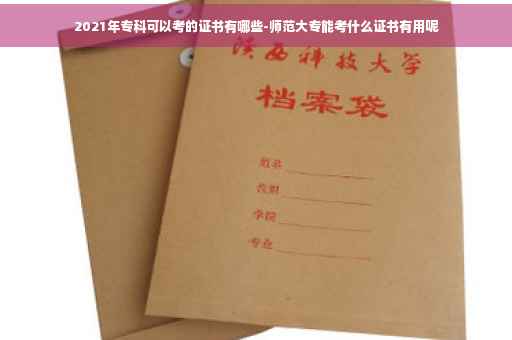 2021年专科可以考的证书有哪些-师范大专能考什么证书有用呢
陕西科技大学
档案袋
姓名
学院
专业